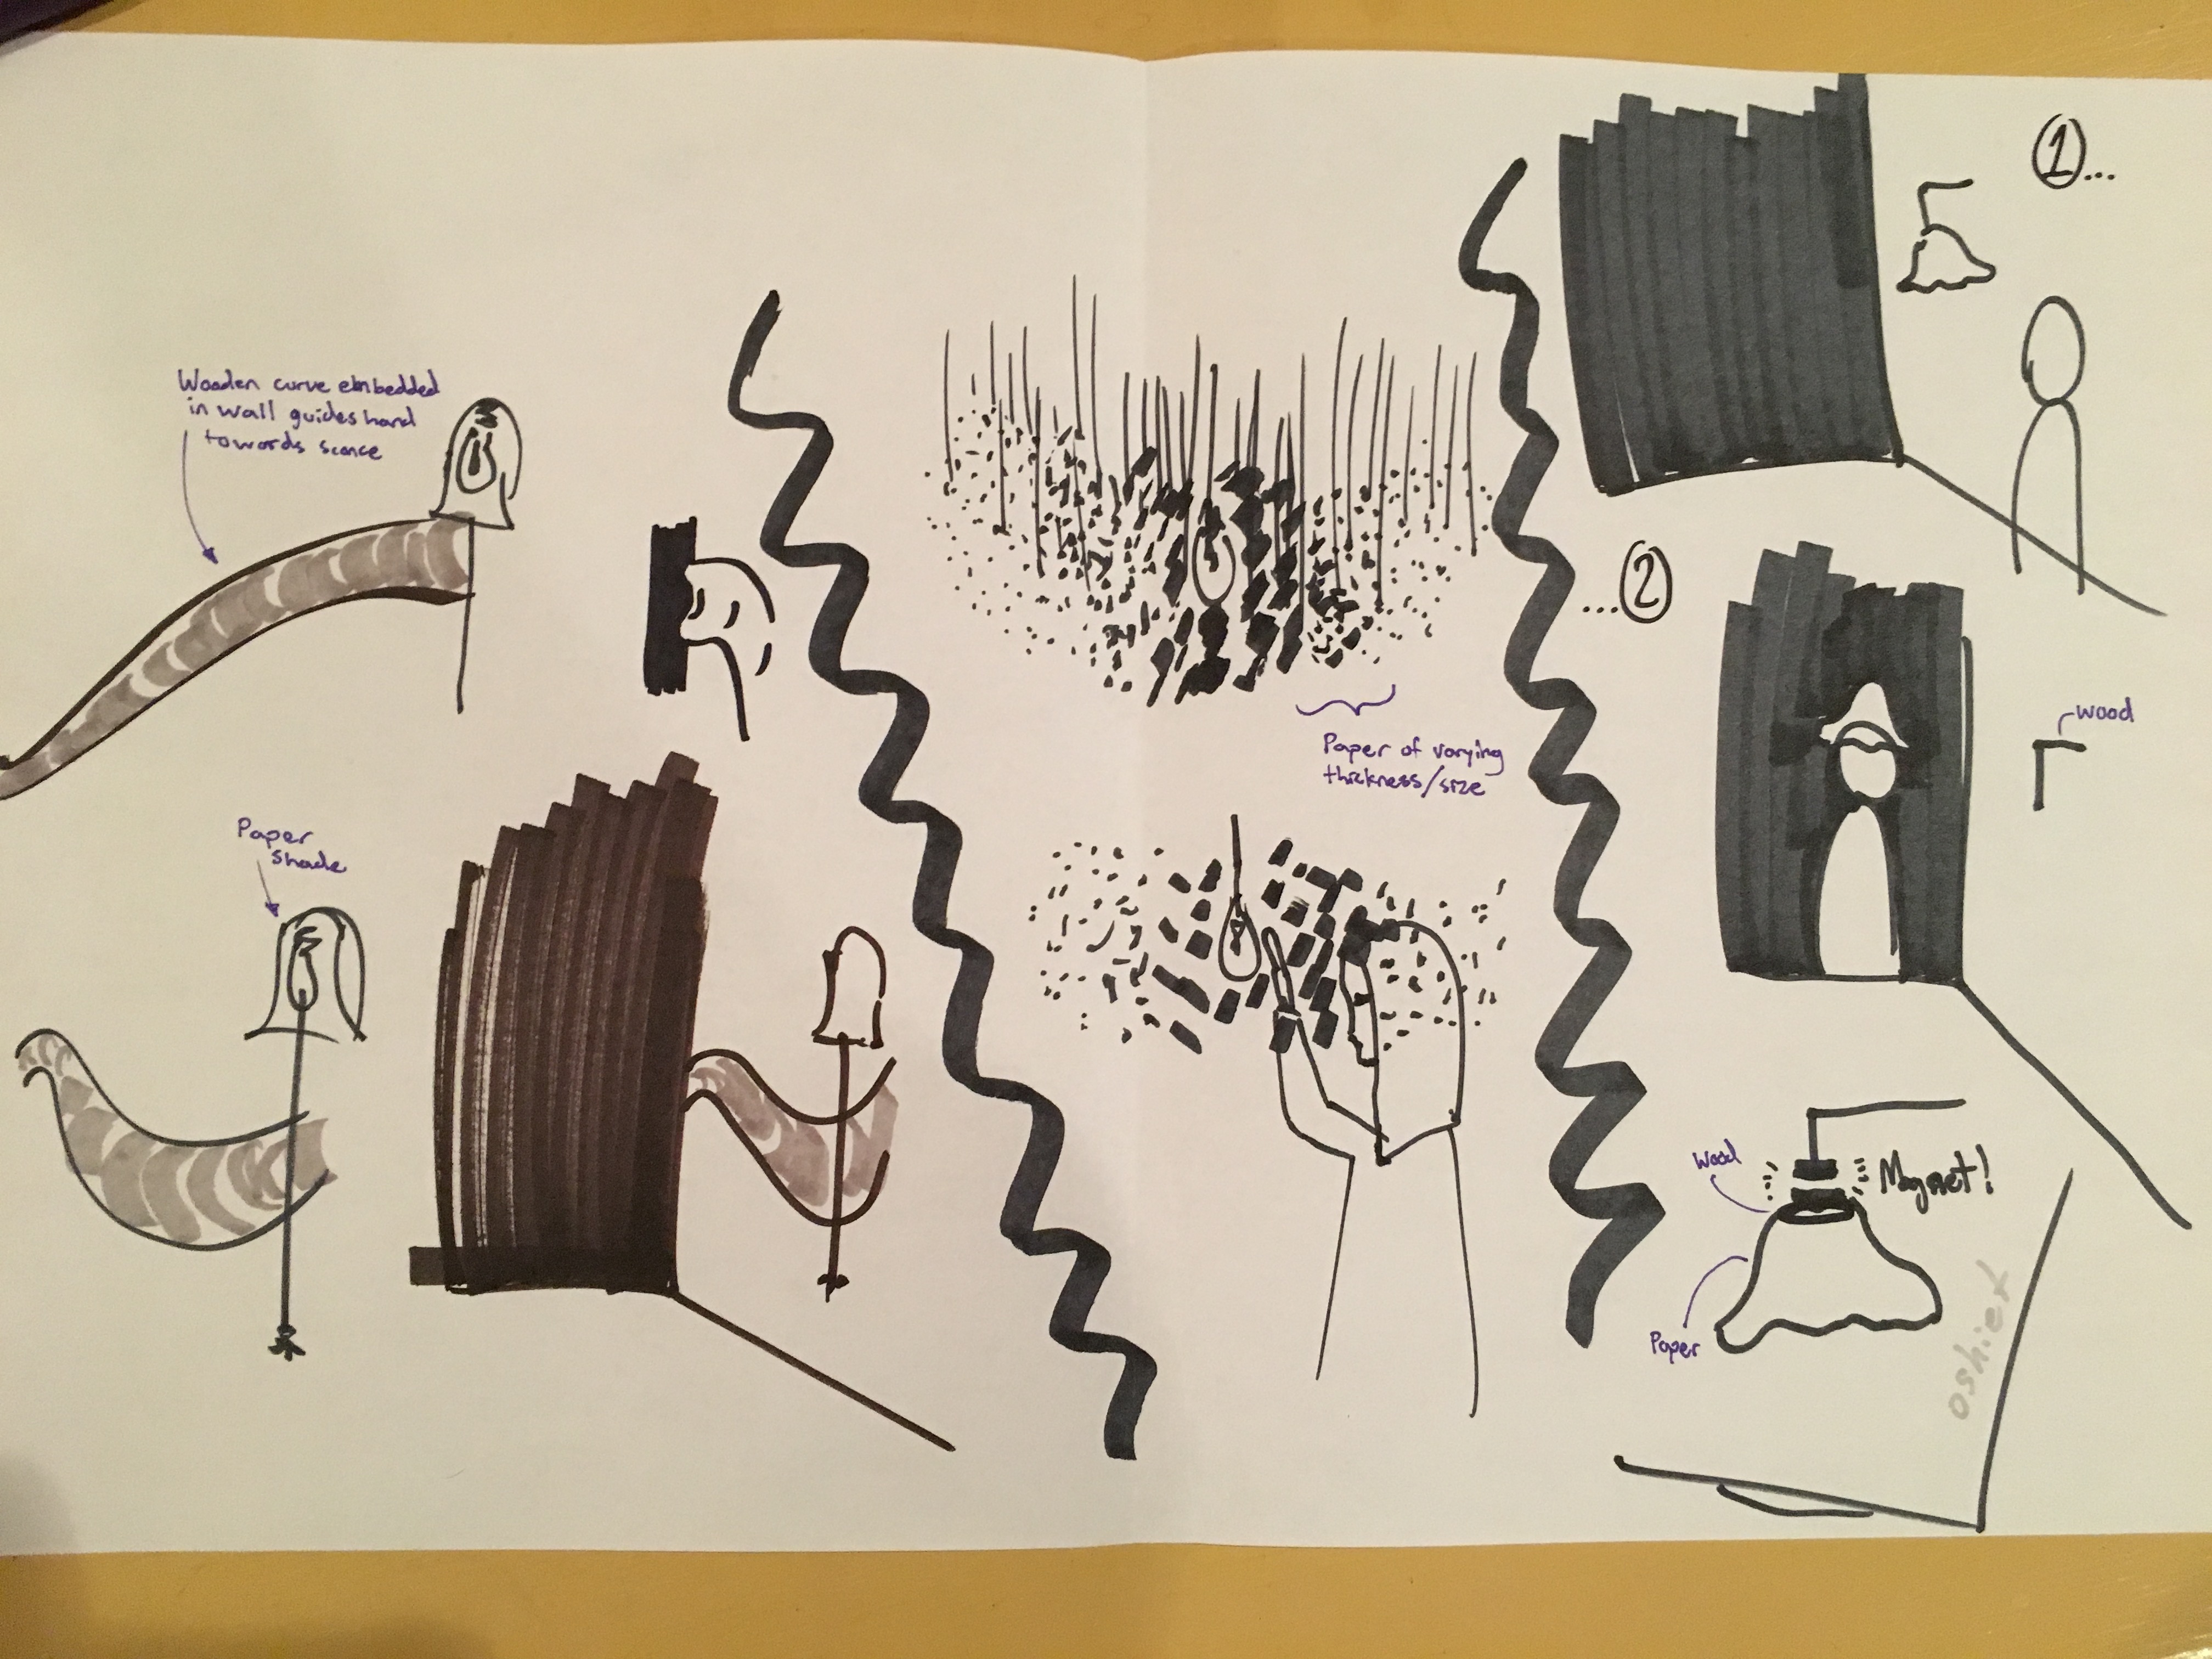 Wooden curve embedded
in wall guides hand
towards sconce
Paper
shade
Paper of varying
thickness/size
1...
...2
wood
Wood
Magnet!
Paper
oshiet